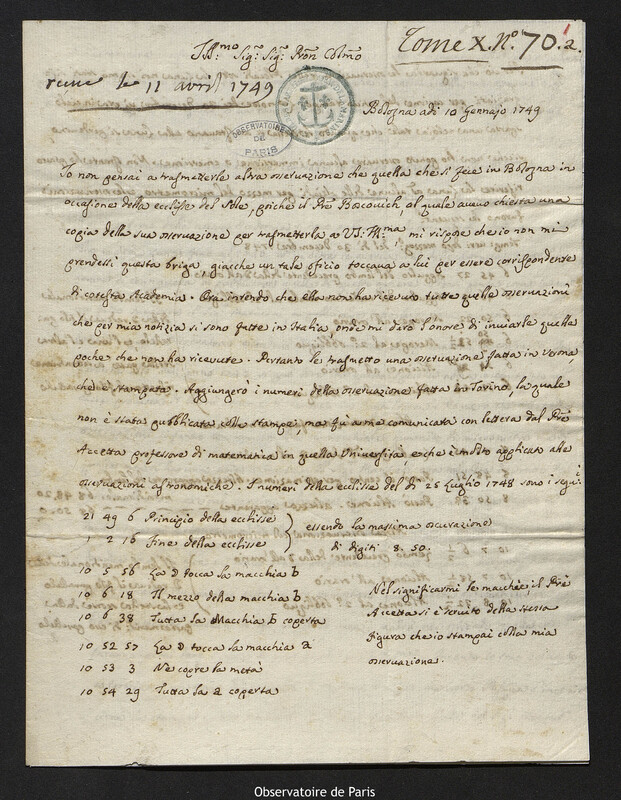 Ill:mo Sig:r Sig:r Pron Colmo
Tome X. N.o 70. 2.
recue le 11 avril 1749
OBSERVATOIRE
DE
PARIS
Bologna adi 10 Gennajo 1749
Io non pensai a trasmetterle altra osservazione che quella che si fece in Bologna in
occasione della ecclisse del Sole, poiche il Pre Boscovich, al quale avevo chiesta una
copia della sua osservazione per trasmetterla a VS: Ill:ma mi rispose che io non mi
prendessi questa briga, giacche un tale oficio toccava a lui per essere corrispondente
di cotesta Academia. Ora intendo che ella non ha ricevuto tutte quelle osservazioni
che per mia notizia si sono fatte in Italia, onde mi daro l'onore di inviarle quelle
poche che non ha ricevute. Pertanto le trasmetto una osservazione fatta in Verona
che è stampata. Aggiungerò i numeri della osservazione fatta in Torino, la quale
non è stata pubblicata colle stampe, ma fù a me comunicata con lettera dal Pre
Accetta professore di matematica in quella Università, e che è molto applicato alle
osservazioni astronomiche. I numeri della ecclisse del dì 25 Luglio 1748 sono i segu:i
21 49 6 Principio della ecclisse
1 2 16 Fine della ecclisse
} essendo la massima oscurazione
di digiti 8. 50.
10 5 56 La ☽ tocca la macchia b
10 6 18 Il mezzo della macchia b
10 6 38 Tutta la Macchia b coperta
10 52 57 La ☽ tocca la macchia a
10 53 3 Ne copre la metà
10 54 29 Tutta la a coperta
Nel significarmi le macchie, il Pre
Accetta si è servito della stessa
figura che io stampai colla mia
osservazione.
Observatoire de Paris